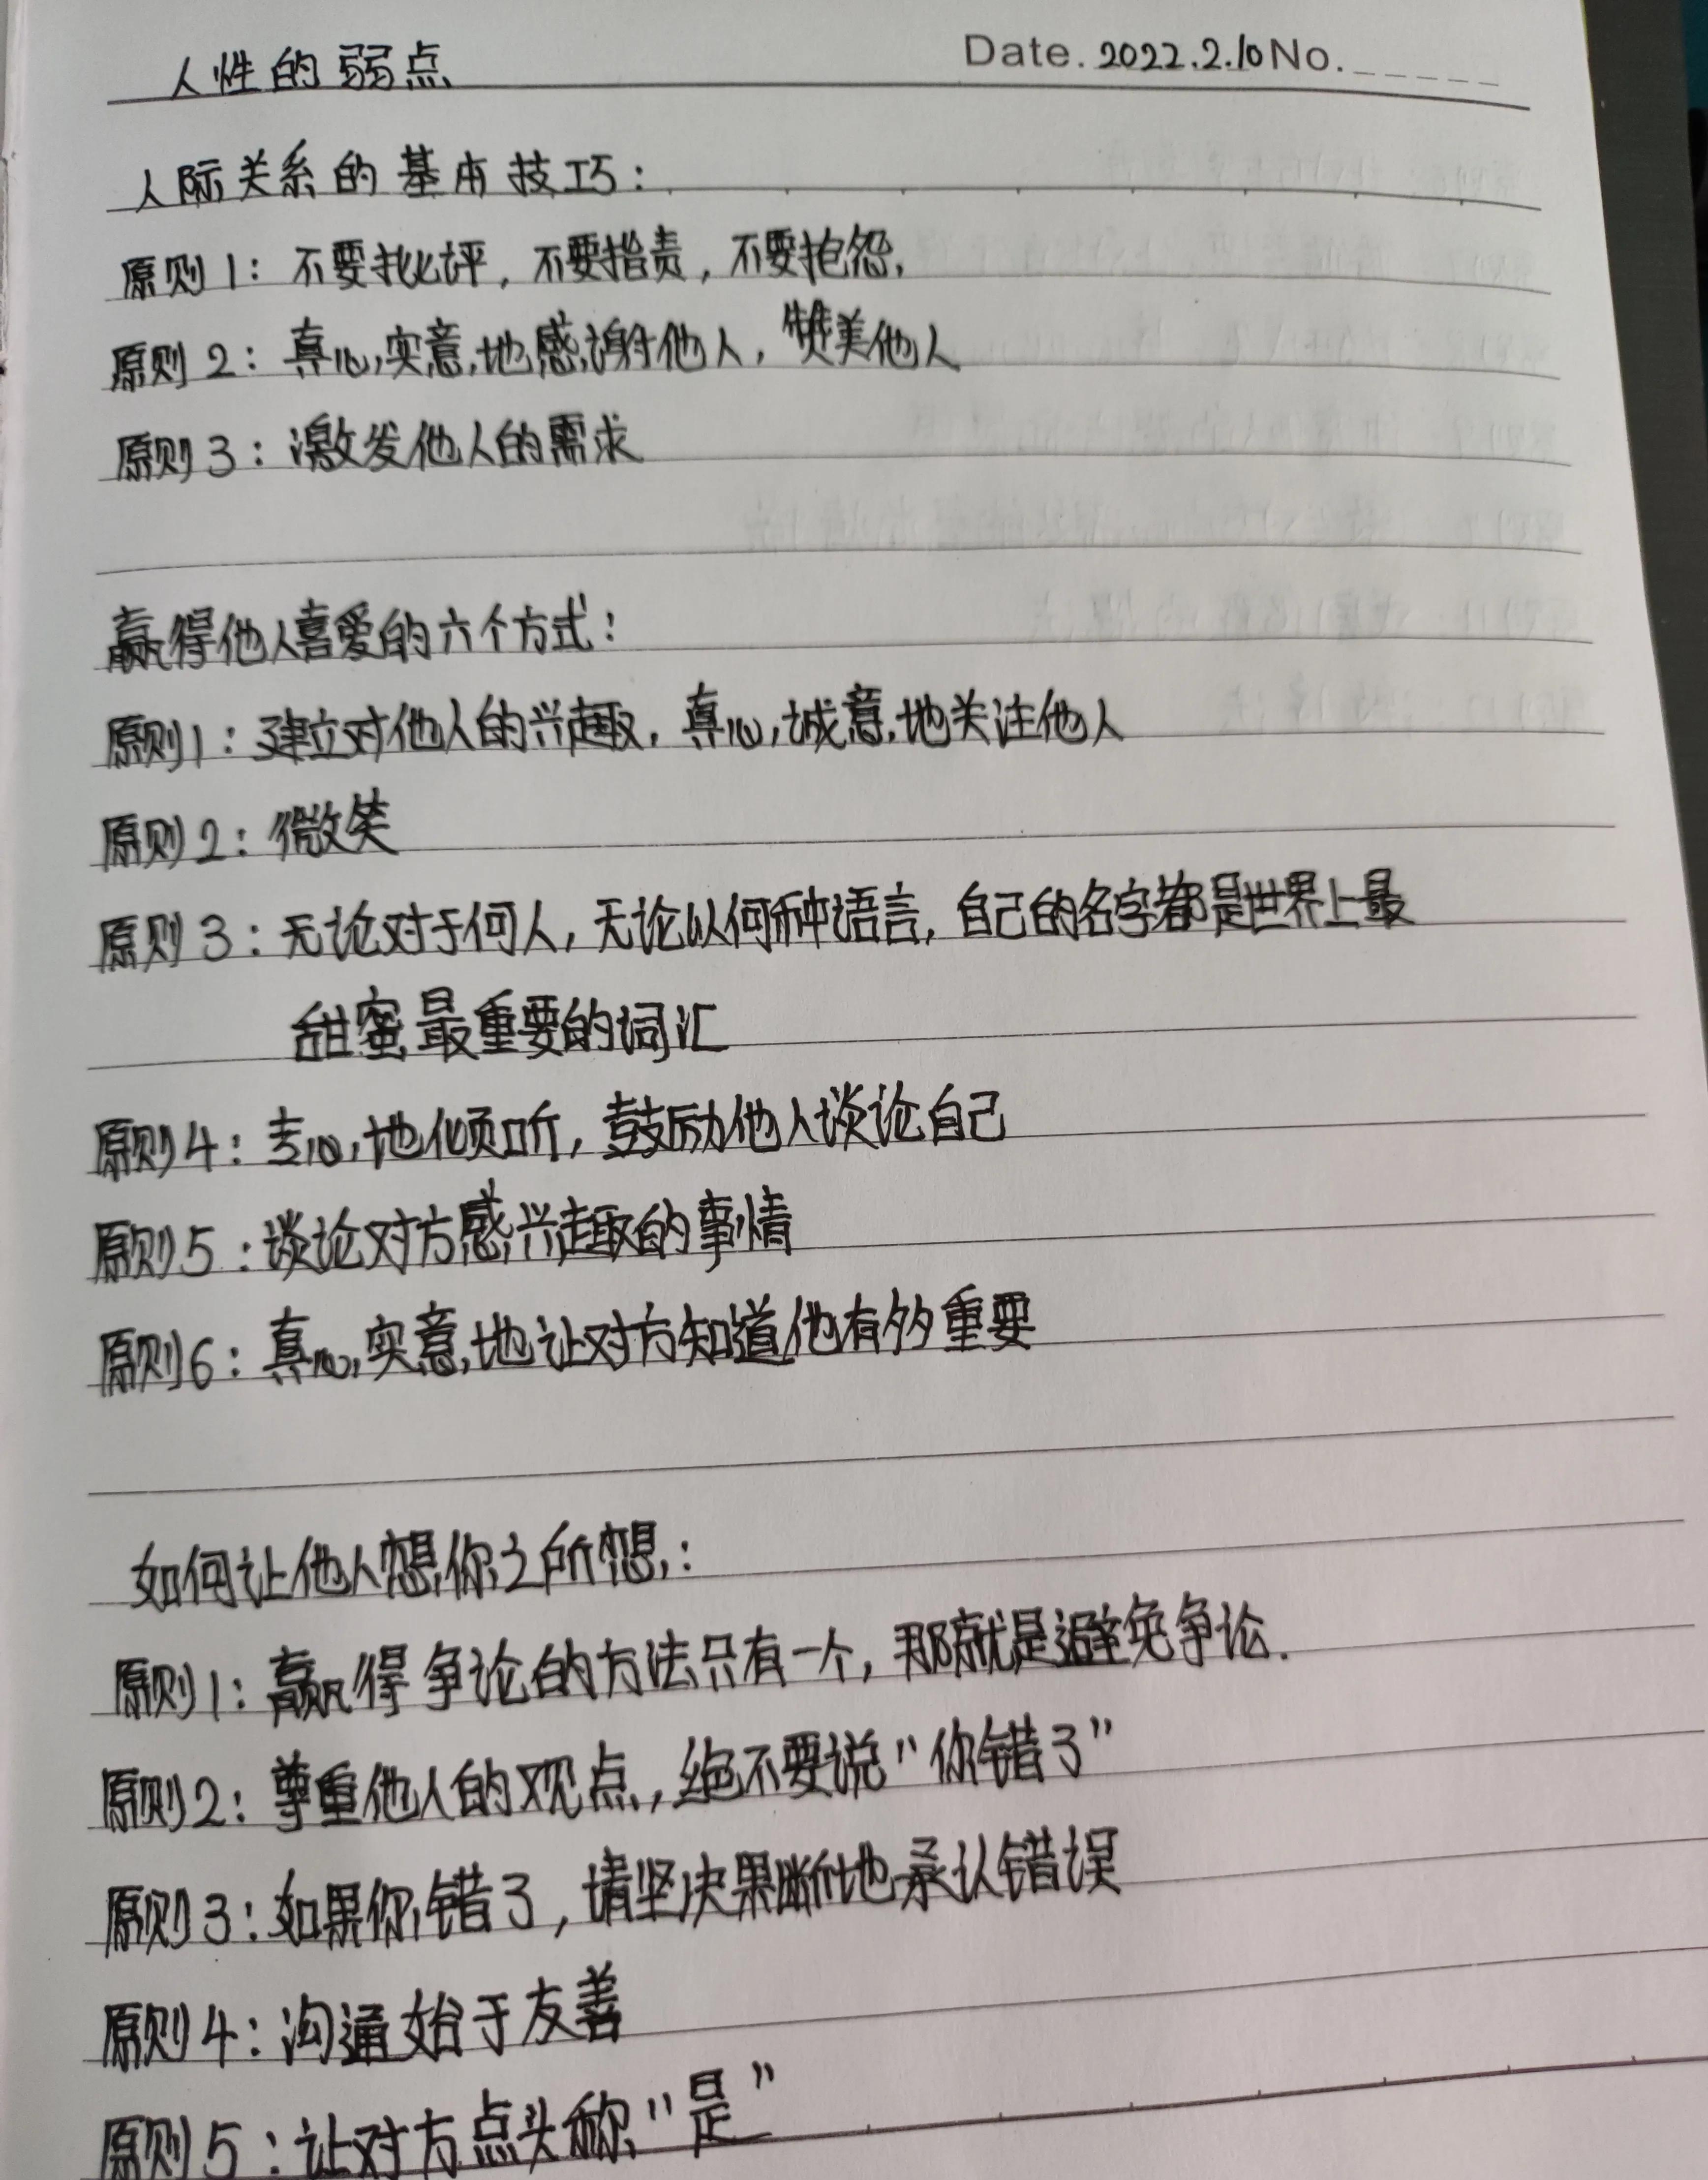 人性的弱点 Date. 2022.2.10 No.
人际关系的基本技巧：
原则1：不要批评，不要指责，不要抱怨，
原则2：真心实意地感谢他人，赞美他人
原则3：激发他人的需求
赢得他人喜爱的六个方式：
原则1：建立对他人的兴趣，真心诚意地关注他人
原则2：微笑
原则3：无论对于何人，无论以何种语言，自己的名字都是世界上最
甜蜜最重要的词汇
原则4：专心地倾听，鼓励他人谈论自己
原则5：谈论对方感兴趣的事情
原则6：真心实意地让对方知道他有多重要
如何让他人想你之所想：
原则1：赢得争论的方法只有一个，那就是避免争论.
原则2：尊重他人的观点，绝不要说“你错了”
原则3：如果你错了，请坚决果断地承认错误
原则4：沟通始于友善
原则5：让对方点头称“是”